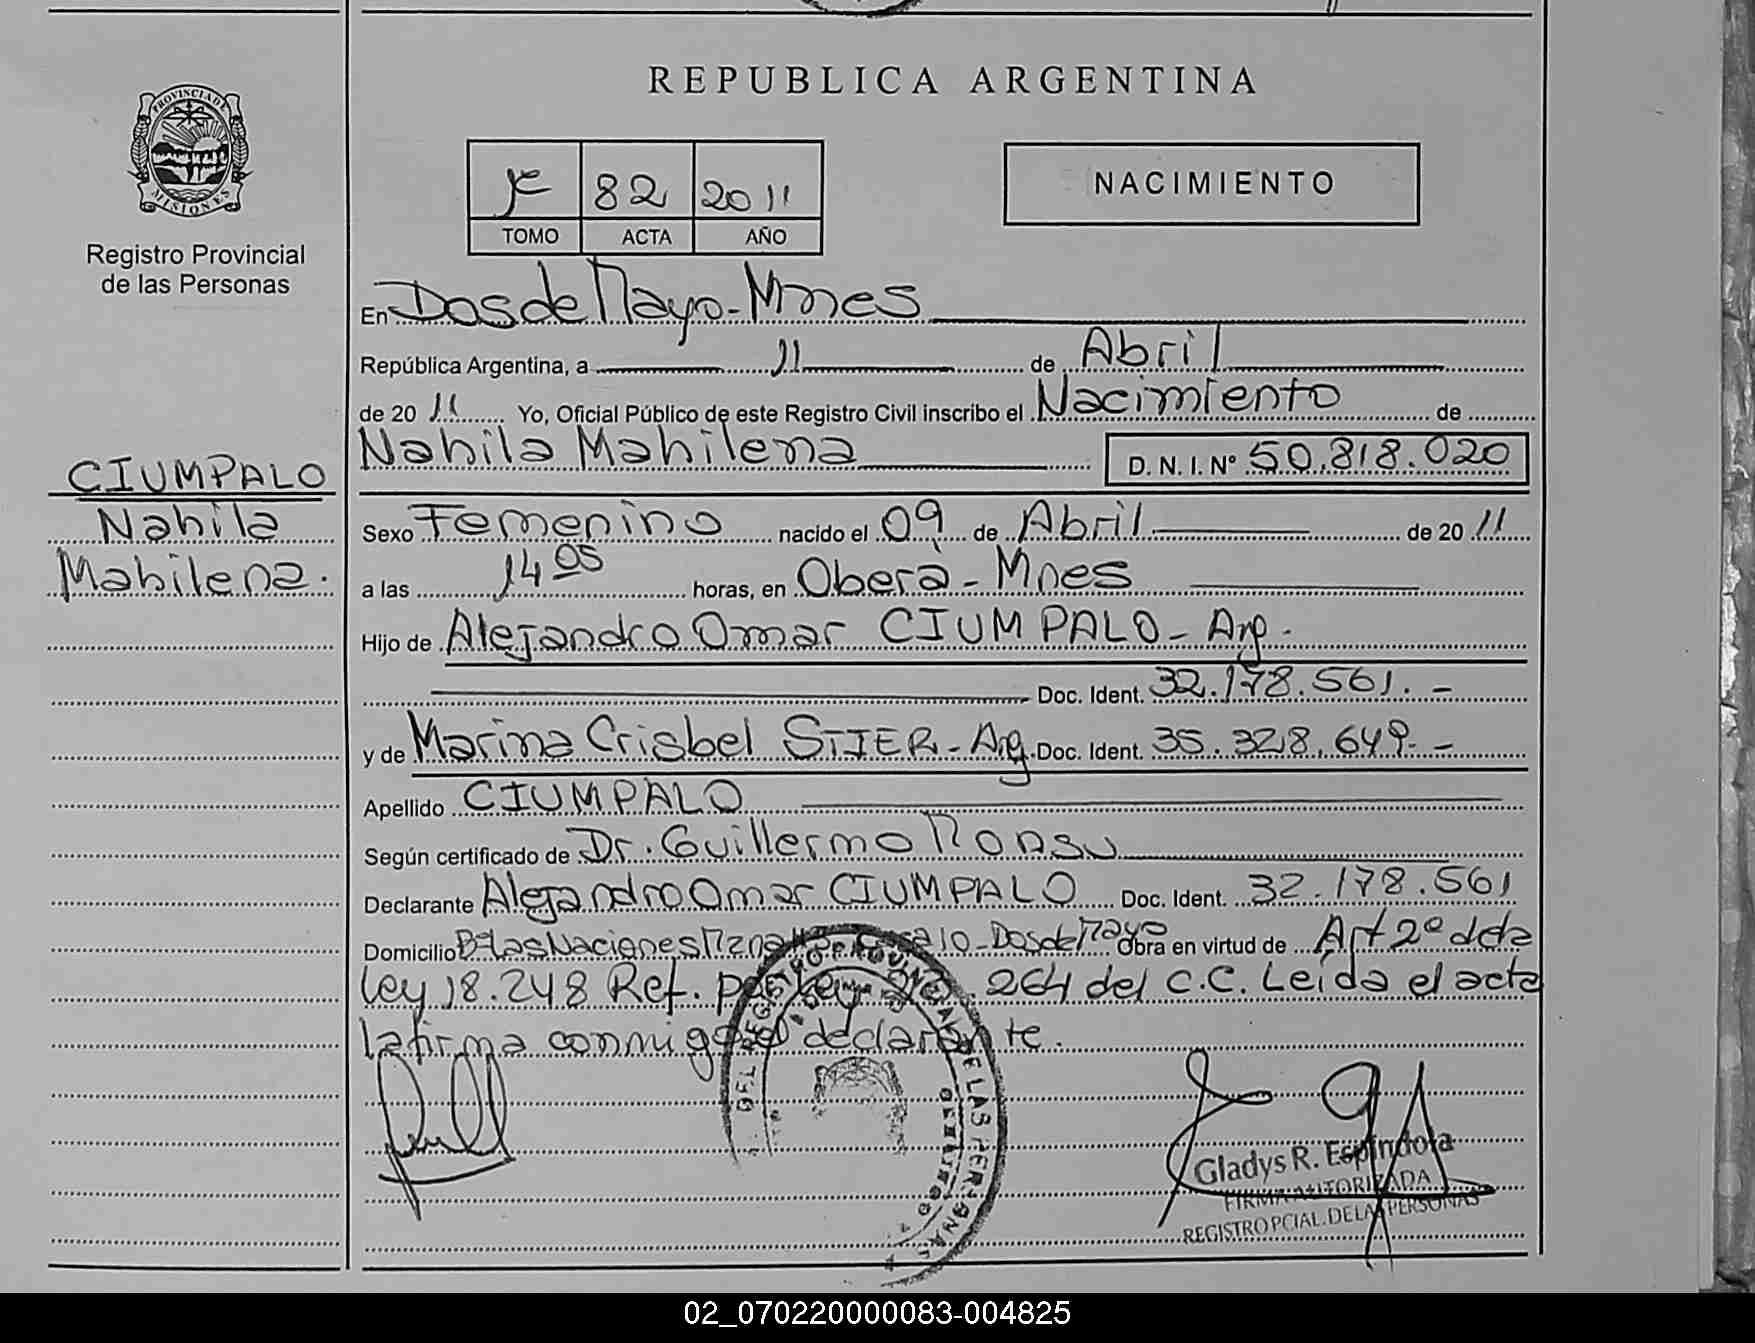 REPUBLICA ARGENTINA
PROVINCIA DE MISIONES
Registro Provincial
de las Personas
82 2011
TOMO ACTA AÑO
NACIMIENTO
En Dos de Mayo - Mnes
República Argentina, a 11 de Abril
de 20 11 Yo, Oficial Público de este Registro Civil inscribo el Nacimiento de
Nahila Mahilena D. N. I. Nº 50.818.020
CIUMPALO
Nahila
Mahilena.
Sexo Femenino nacido el 09 de Abril de 20 11
a las 14 05 horas, en Oberà - Mnes
Hijo de Alejandro Omar CIUMPALO - Arg.
Doc. Ident. 32.178.561. -
y de Marina Crisbel STIER - Arg. Doc. Ident. 35.328.649. -
Apellido CIUMPALO
Según certificado de Dr. Guillermo Monsu
Declarante Alejandro Omar CIUMPALO Doc. Ident. 32.178.561
Domicilio Bº Las Naciones Casa 10 - Dos de Mayo Obra en virtud de Art 2º de la
Ley 18.248 Ref. por Ley 264 del C.C. Leída el acta
la firma conmigo el declarante.
DEL REGISTRO PROVINCIAL DE LAS PERSONAS
Gladys R. Espindola
FIRMA AUTORIZADA
REGISTRO PCIAL. DE LAS PERSONAS
02_070220000083-004825